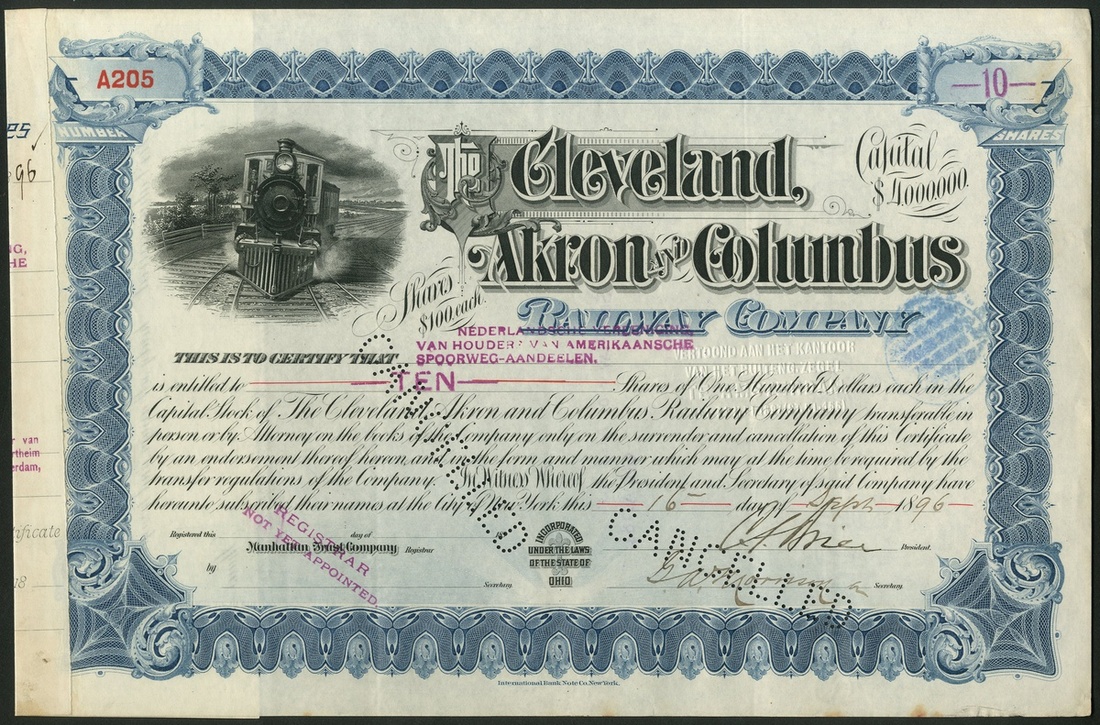 A205
NUMBER
—10—
SHARES
The Cleveland,
Akron AND Columbus
Railway Company
Capital
$4,000,000.
Shares
$100. each.
NEDERLANDSCHE VEREENIGING
VAN HOUDERS VAN AMERIKAANSCHE
SPOORWEG-AANDEELEN.
VERTOOND AAN HET KANTOOR
THIS IS TO CERTIFY THAT
is entitled to —TEN— Shares of One Hundred Dollars each in the
Capital Stock of The Cleveland, Akron and Columbus Railway Company transferable in
person or by Attorney on the books of the Company only on the surrender and cancellation of this Certificate
by an endorsement thereof hereon, and in the form and manner which may at the time be required by the
transfer regulations of the Company. In Witness Whereof the President and Secretary of said Company have
hereunto subscribed their names at the City of New York this — 16 — day of Sept. 1896
CANCELLED
CANCELLED
Registered this day of
Manhattan Trust Company Registrar
by Secretary.
REGISTRAR
NOT YET APPOINTED
INCORPORATED
UNDER THE LAWS
OF THE STATE OF
OHIO
President.
Secretary.
International Bank Note Co. New York.
96
18